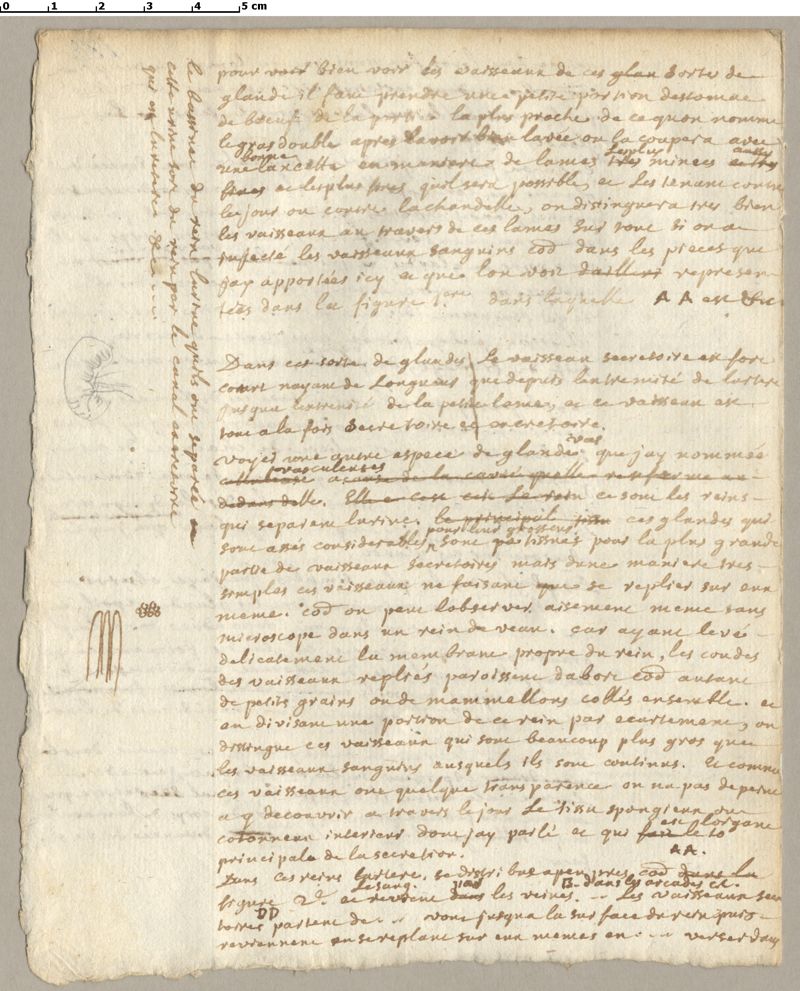 0 1 2 3 4 5 cm
pour voir bien voir les vaisseaux de ces glan sortes de
glande il faut prendre une petite portion destomac
de boeuf de la partie la plus proche de ce quon nomme
le gras double apres lavoir bien lavée on la coupera avec
une bonne lancette en maniere de lames tres les plus minces et tres aussi
fines et les plus qu'il sera possible, et les tenant contre
le jour ou contre la chandelle, on distinguera tres bien
les vaisseaux au travers de ces lames sur tout si on a
injecté les vaisseaux sanguins cõe dans les pieces que
jay apportées icy et que lon voit dailleurs represen-
tées dans la figure 1.ere dans laquelle A A est &c
Dans cet sorte de glandes, le vaisseau secretoire est fort
court nayant de longueur que depuis lextremité de lartere
jusque lextremité de la petite lame, et ce vaisseau est
tout a la fois secretoire et excretoire.
voyes une autre espece de glande que jay nommée vas
vasculeuses celluleuse a cause de la cavité quelle renferme au
dedans delle. Elle e cest cest le rein ce sont les reins
qui separent lurine. le principal tissu ces glandes qui
sont assés considerables pour leur grosseur, sont tissues pour la plus grande
partie de vaisseaux secretoires mais dune maniere tres-
simples ces vaisseaux ne faisant que se replier sur eux
meme. cõe on peut lobserver aisement meme sans
microscope dans un rein de veau. car ayant levé
delicatement la membrane propre du rein, les coudes
des vaisseaux repliés paroissent dabort cõe autant
de petits grains ou de mammellons collés ensemble. et
en divisant une portion de ce rein par ecartement, on
distingue ces vaisseaux qui sont beaucoup plus gros que
les vaisseaux sanguins ausquels ils sont continus. Et comme
ces vaisseaux ont quelque transparence on na pas de peine
a y decouvrir a travers le jour le tissu spongieux ou
cotonneux interieur dont jay parlé et qui fait le est lorgane
principale de la secretion. A A.
Dans ces reins lartere, se distribue a peu pres cõe dans la
figure 2.e et revient dans les veines. Le sang par B. dans les arcades CC.
Les vaisseaux secre
toires DD partent de .. vont jusqua la surface du rein puis
reviennent en se repliant sur eux memes en ... verser dans
le bassinet du rein lurine quils ont separée et
cette urine sort du rein par le canal excretoire
qui est luretere